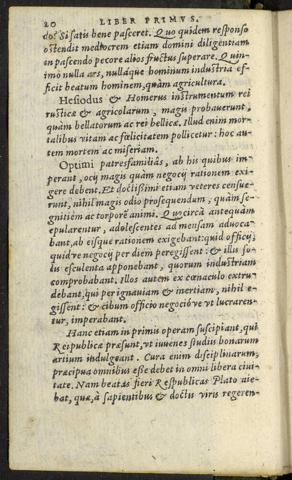 20 LIBER PRIMVS.
do? Si satis bene pasceret. Quo quidem responso
ostendit mediocrem etiam domini diligentiam
in pascendo pecore alios fructus superare. Quin-
imo nulla ars, nullaque hominum industria ef-
ficit beatum hominem, quàm agricultura.
Hesiodus & Homerus instrumentum rei
rusticæ & agricolarum, magis probauerunt,
quàm bellatorum ac rei bellicæ. Illud enim mor-
talibus vitam ac fœlicitatem pollicetur: hoc au-
tem mortem ac miseriam.
Optimi patresfamiliâs, ab his quibus im-
perant, ocij magis quàm negocij rationem exi-
gere debent. Et doctissimi etiam veteres censue-
runt, nihil magis odio prosequendum, quàm se-
gnitiem ac torporē animi. Quocircà antequàm
epularentur, adolescentes ad mensam aduoca-
bant, ab eisque rationem exigebant: quid officij,
quidve negocij per diem peregissent: & illis su-
dis esculenta apponebant, quorum industriam
comprobabant. Illos autem ex cœnaculo extru-
debant, qui per ignauiam & inertiam, nihil e-
gissent: & cibum officio negotióve vt lucraren-
tur, imperabant.
Hanc etiam in primis operam suscipiant, qui
Reipublicæ præsunt, vt iuuenes studiis bonarum
artium indulgeant. Cura enim disciplinarum,
præcipua omnibus esse debet in omni libera ciui-
tate. Nam beatas fieri Respublicas Plato aie-
bat, quæ à sapientibus & doctis viris regeren-